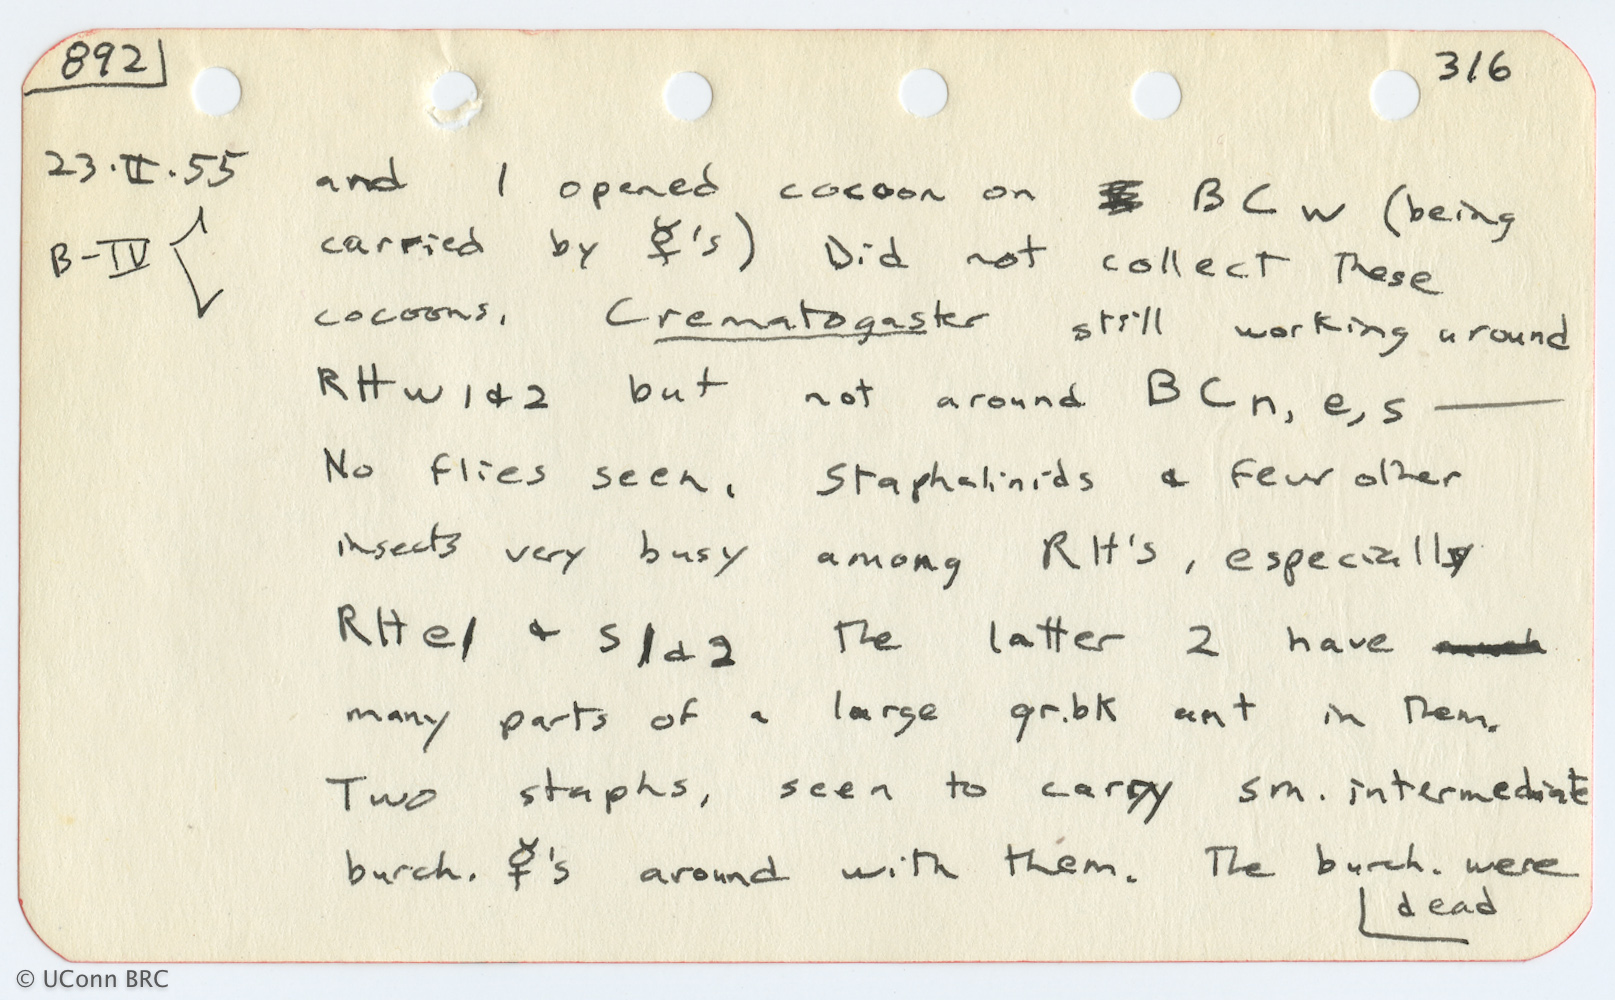 892
316
23.II.55
B-IV
and 1 opened cocoon on BCw (being
carried by ☿'s) Did not collect these
cocoons. Crematogaster still working around
RHw1&2 but not around BCn, e, s —
No flies seen. Staphalinids & few other
insects very busy among RH's, especially
RHe1 & s1&2 The latter 2 have
many parts of a large gr.bk ant in them.
Two staphs, seen to carry sm. intermediate
burch. ☿'s around with them. The burch. were
dead
© UConn BRC